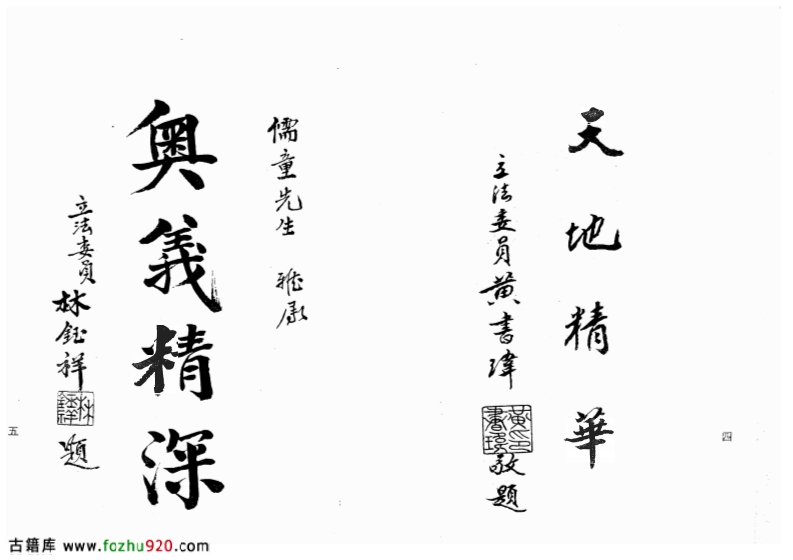 天地精華
立法委員黃書瑋
敬題
四
儒童先生 雅屬
奧義精深
立法委員
林鈺祥
題
五
古籍库 www.fozhu920.com